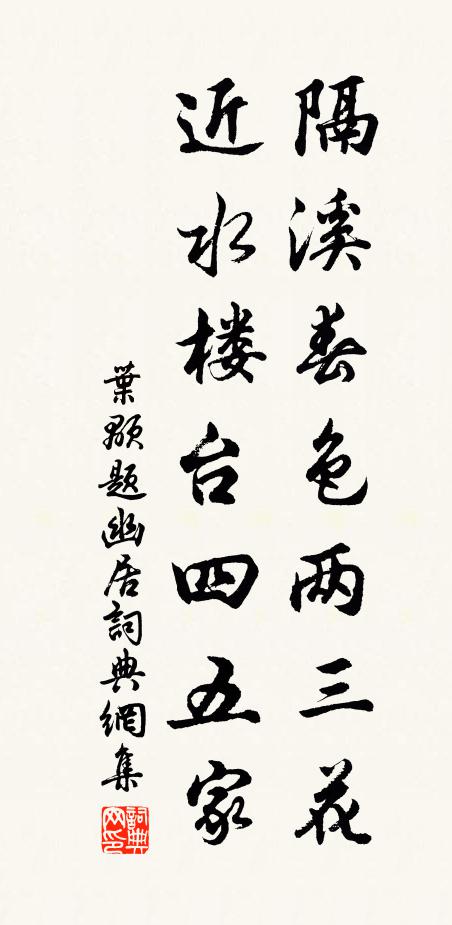 隔溪春色两三花
近水楼台四五家
葉顒題幽居詞典網集
詞典网印